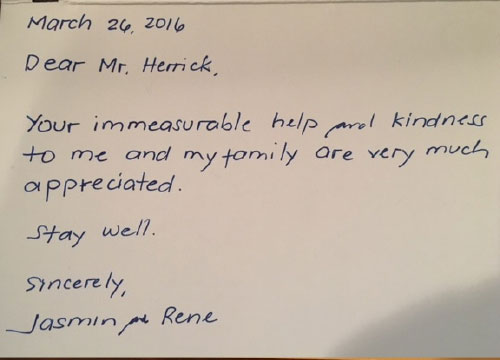 March 26, 2016
Dear Mr. Herrick,
Your immeasurable help and kindness
to me and my family are very much
appreciated.
Stay well.
Sincerely,
Jasmin and Rene